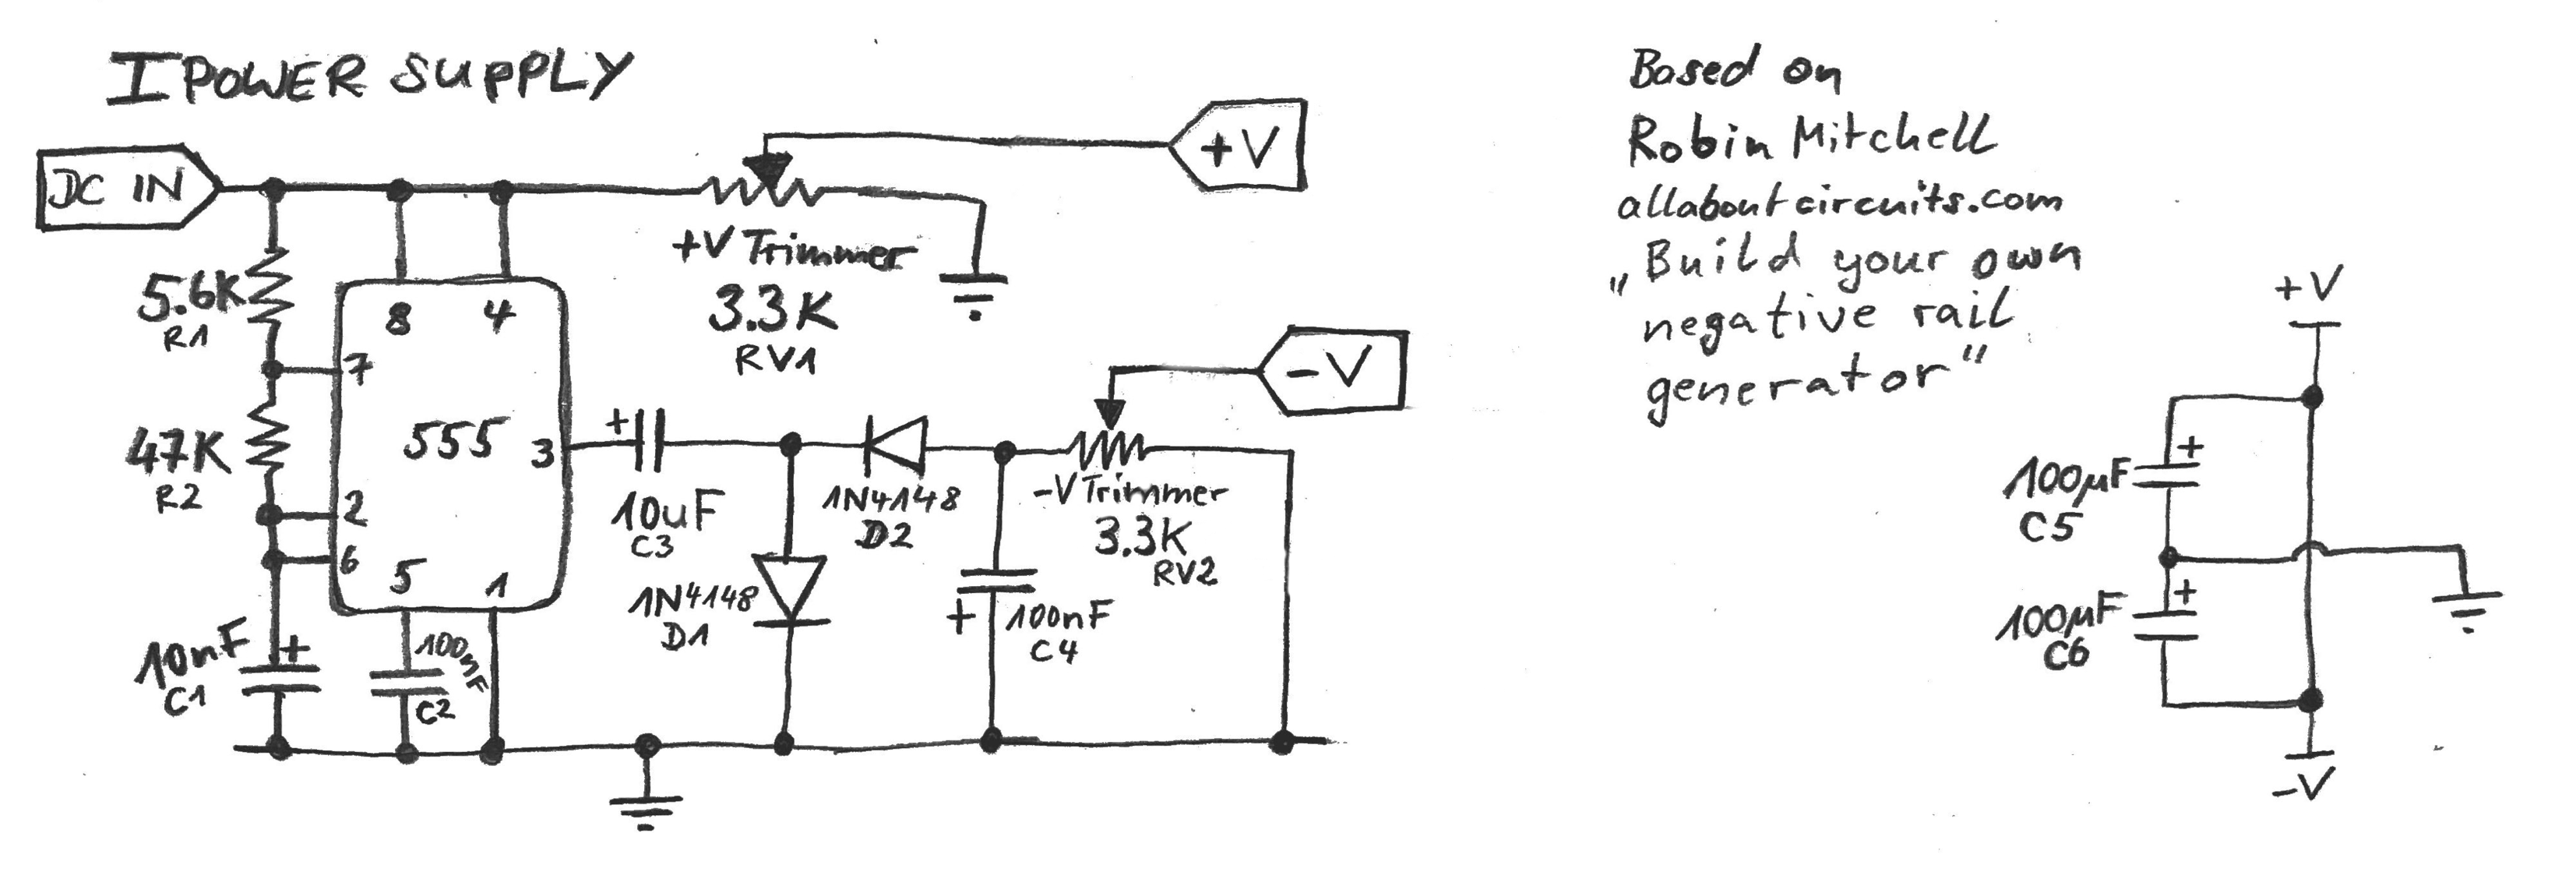 I POWER SUPPLY
DC IN
+V
+V Trimmer
3.3K
RV1
5.6K
R1
8
4
7
555
3
47K
R2
2
6
5
1
10nF
C1
+
100nF
C2
+
10uF
C3
1N4148
D2
1N4148
D1
-V
-V Trimmer
3.3K
RV2
+
100nF
C4
Based on
Robin Mitchell
allaboutcircuits.com
„Build your own
negative rail
generator"
+V
+
100µF
C5
+
100µF
C6
-V